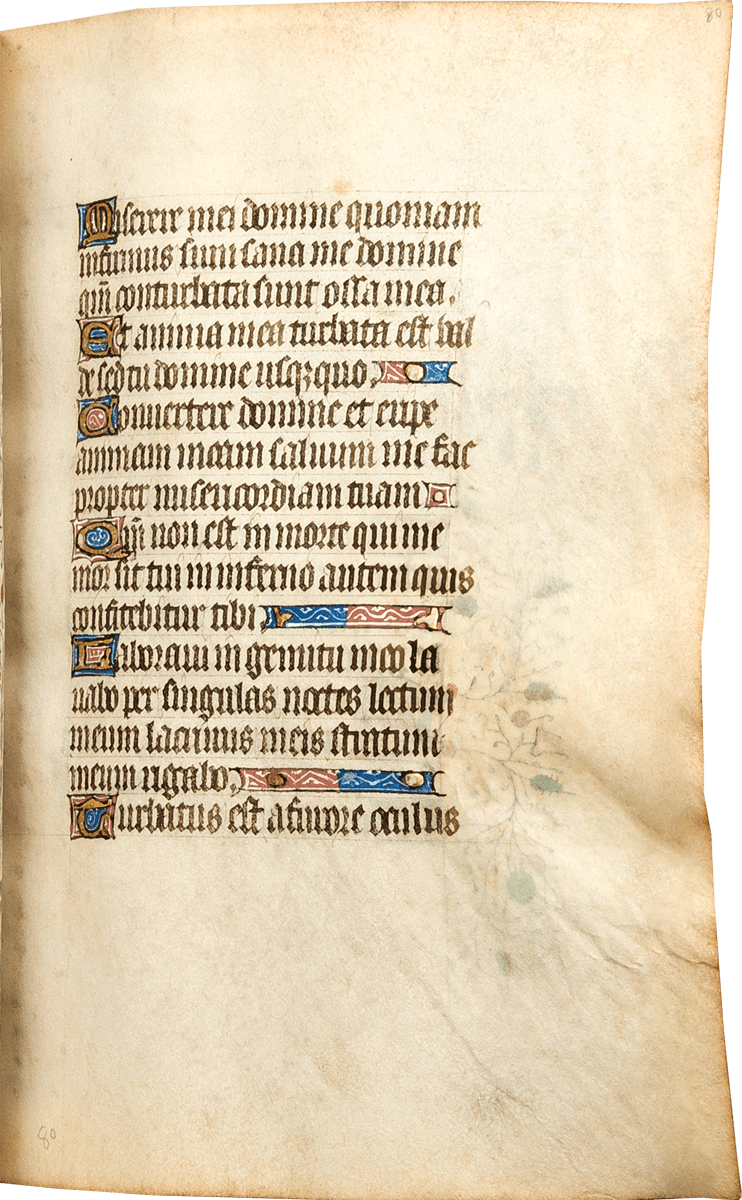 80
Miserere mei domine quoniam
infirmus sum sana me domine
qm̄ conturbata sunt ossa mea.
Et anima mea turbata est val
de sed tu domine usqꝫquo.
Conuertere domine et eripe
animam meam saluum me fac
propter misericordiam tuam
Qm̄ non est in morte qui me
mor sit tui in inferno autem quis
confitebitur tibi
Laboraui in gemitu meo la
uabo per singulas noctes lectum
meum lacrimis meis stratum
meum rigabo.
Turbatus est a furore oculus
80